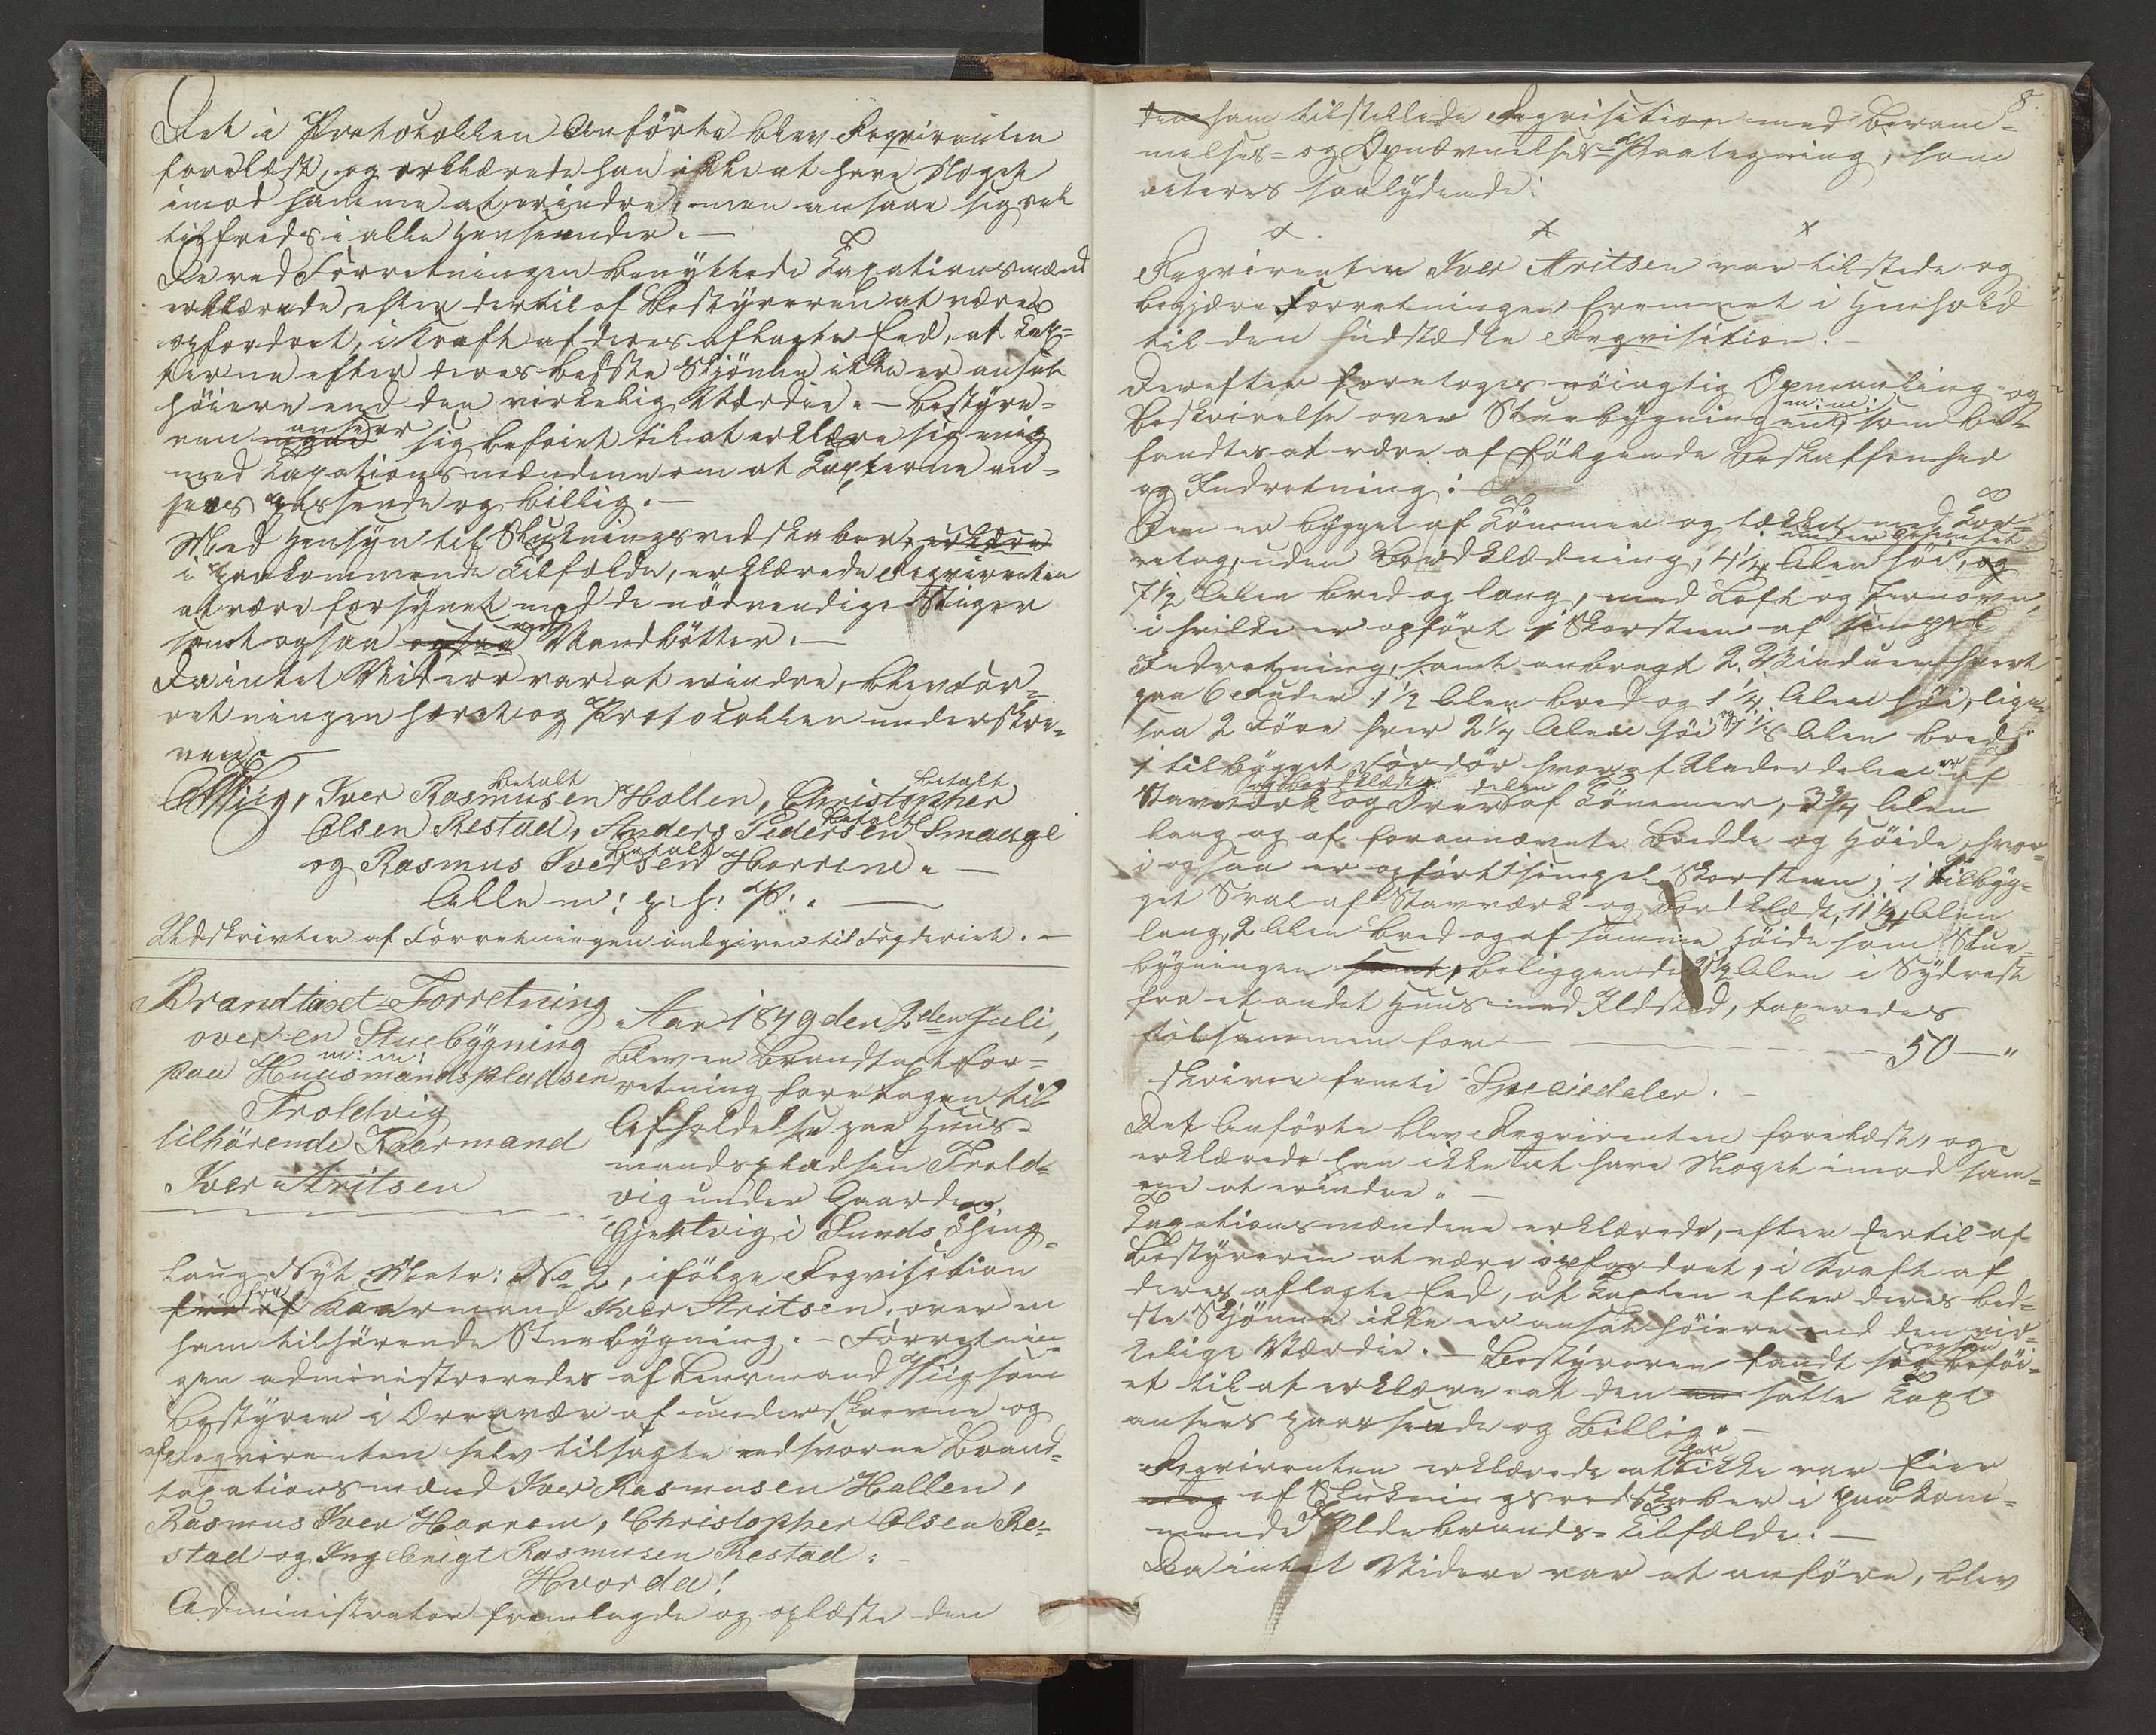 Det i Protokollen Anförte blev Reqvirenten
forelæst, og erklærede han ikke at have Noget
imod samme at erindre, men ansaae sig vel
tilfreds i alle Henseender. —
De ved Forretningen benyttede Taxationsmænd
erklærede, efter dertil af Bestyreren at være
opfordret, i Kraft af deres aflagte Eed, at Tax-
terne efter deres bedste Skjönnende ikke er ansat
höiere end den virkelig Værdie. — Bestyre-
ren ansaar sig beföiet til at erklære sig enig
med Taxationsmændene om at Taxterne an-
sees passende og billig. —
Med Hensyn til Slukningsredskaber
i paakommende Tilfælde, erklærede Reqvirenten
at være forsynet med de nödvendige Stiger
samt ogsaa med Vandbötter. —
Da intet Videre var at erindre, blev For-
retningen hævet og Protokollen underskre-
ven.
Wiig, Iver Rasmusen Hallen, Christopher
betalt betalt
Olsen Restad, Anders Pedersen Smauge
betalt
og Rasmus Iversen Harrem. —
betalt
Alle m: p. f: P: . —
Udskrivten af Forretningen indgiven til Fogderiet. —
Brandtaxt-Forretning
over en Stuebygning
m: m:
paa Huusmandspladsen
Troldvig
tilhörende Kaarmand
Iver Aritsen
Aar 1849 den 2den Juli,
blev en Brandtaxtfor-
retning foretagen til
Afholdelse paa Huus-
mandspladsen Trold-
vig under Gaarden
Gjertvig i Sunds Thing-
laug Nyt Matr: No 2, ifölge Reqvisition
fra Kaarmand Iver Aritsen, over en
ham tilhörende Stuebygning. — Forretnin-
gen administreredes af Lensmand Wiig som
Bestyrer i Overvær af underskrevne og
af Reqvirenten selv tilsagte eedsvorne Brand-
taxationsmænd Iver Rasmusen Hallen,
Rasmus Iver Harrem, Christopher Olsen Re-
stad og Ingebrigt Rasmusen Restad.
Hvorda!
Administrator fremlagde og oplæste den
8.
ham tilstillede Reqvisition med Beram-
melses- og Opnævnelses-Paategning, som
acteres saalydende:
x x x
Reqvirenten Iver Aritsen var tilstede og
begjære Forretningen fremmet i Henhold
til den fudstædte Reqvisition. —
Derefter foretoges nöiagtig Opmaaling og
Beskrivelse over Stuebygningen m: m:, som be-
fandtes at være af fölgende Beskaffenhed
og Indretning:
Den er bygget af Tömmer og tækket med Tor-
vetag, uden Bordklædning, 4 1/4 Alen höi under Gesimset,
7 1/2 Alen bred og lang, med Loft og Jernovn,
i hvilke er opfört 1 Skorsteen af simpel
Indretning, samt anbragt 2 Vinduer hvert
paa 6 Ruder 1 1/2 Alen bred og 1 1/4 Alen höi, lige-
saa 2 Döre hver 2 1/4 Alen höi og 1 1/8 Alen bred;
1 tilbygget Fordör hvoraf Underdelen er af
Stavværk og bordklædt og Överdelen af Tömmer, 3 3/4 Alen
lang og af forannævnte Bredde og Höide, hvor-
i ogsaa er opfört 1 simpel Skorsteen; 1 Tilbyg-
get Sval af Stavværk og Bordklædt, 11 1/4 Alen
lang, 2 Alen bred og af samme Höide som Stue-
bygningen, beliggende 21 1/2 Alen i Sydvest
fra et andet Huus med Ildsted, taxeredes
tilsammen for — 50 — "
skriver femti Speciedaler. —
Det Anförte blev Reqvirenten forelæst, og
erklærede han ikke at have Noget imod sam-
me at erindre. —
Taxationsmændene erklærede, efter dertil af
Bestyreren at være opfordret, i Kraft af
deres aflagte Eed, at Taxten efter deres bed-
ste Skjönne ikke er ansat höiere end den vir-
kelige Værdie. — Bestyreren fandt sig ogsaa beföi-
et til at erklære at den satte Taxt
ansees passende og Billig. —
Reqvirenten erklærede at han ikke var Eier
af Slukningsredskaber i paakom-
mende Ildebrands-Tilfælde. —
Da intet Videre var at anföre, blev